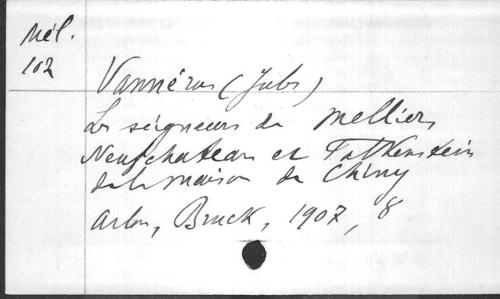 Mél.
102
Vannérus (Jules)
Les seigneurs de Mellier,
Neufchateau et Falkenstein
de la maison de Chiny
Arlon, Bruck, 1907, 8